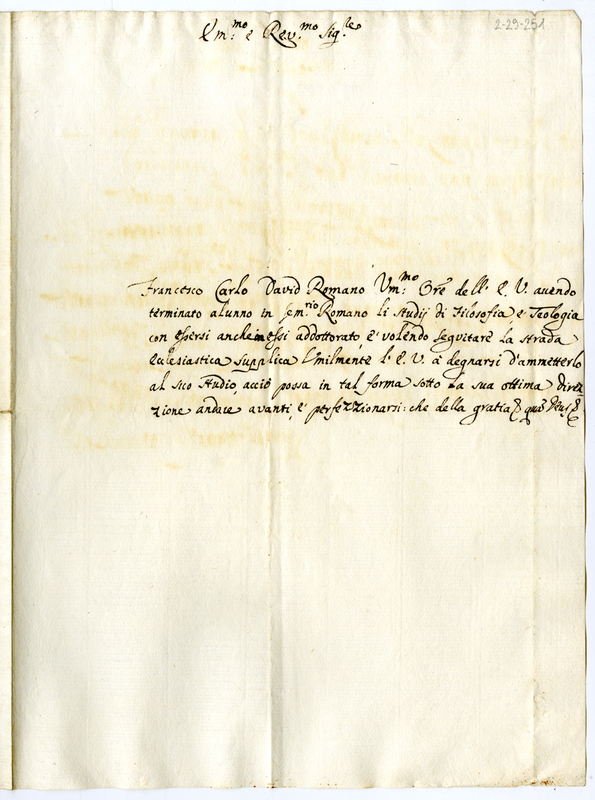 Em:mo e Rev:mo Sig:re
2-29-251
Francesco Carlo David Romano Um:mo Ore dell' E. V. avendo
terminato alunno in sem:rio Romano li studij di Filosofia e Teologia
con essersi anche in essi addottorato, e volendo seguitare la strada
Eclesiastica supplica Umilmente l'E. V. à degnarsi d'ammetterlo
al suo studio, acciò possa in tal forma sotto la sua ottima direz=
zione andare avanti, e perfezzionarsi: che della gratia